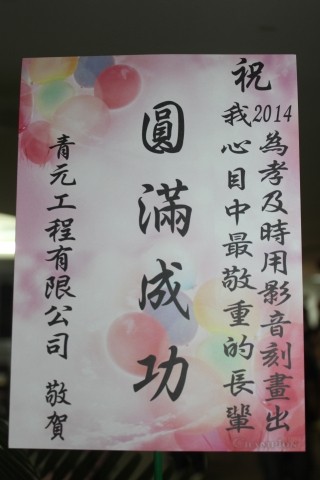 祝
2014為孝及時用影音刻畫出
我心目中最敬重的長輩
圓滿成功
青元工程有限公司 敬賀